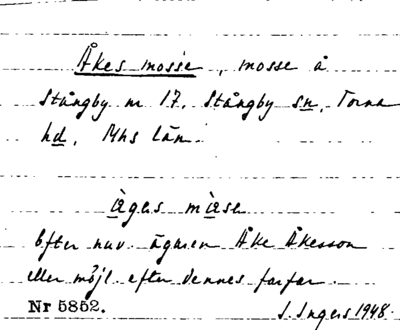 Åkes mosse, mosse å
Stångby nr 17. Stångby sn, Torna
hd, Mhs län.
åges måse
Efter nuv. ägaren Åke Åkesson
eller möjl. efter dennes farfar.
Nr 5852.
I. Ingers 1948.